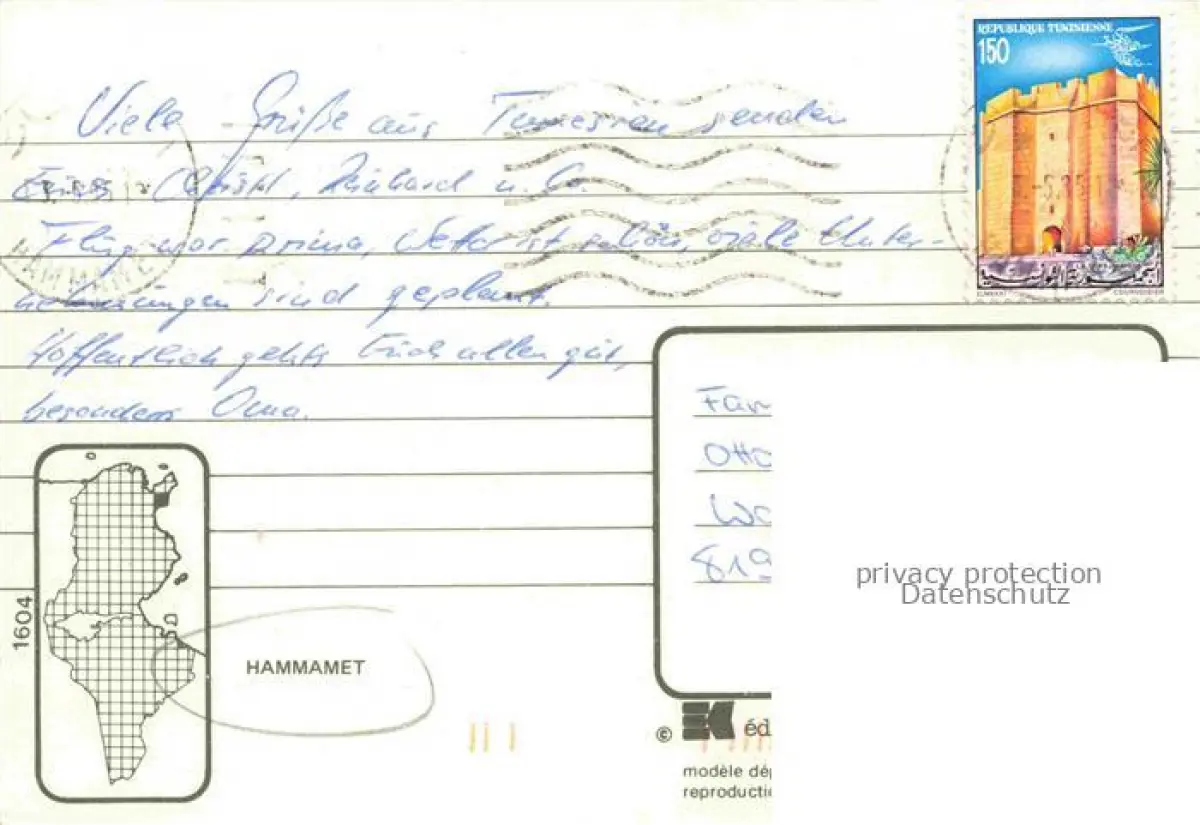 REPUBLIQUE TUNISIENNE
150
Viele Grüße aus Tunesien senden
Christl, Richard u. Co.
Flug war prima, Wetter ist schön, viele Unter-
nehmungen sind geplant.
Hoffentlich gehts Euch allen gut,
besonders Oma.
HAMMAMET
الجمهورية التونسية
Fam
Otto
Wa
819
privacy protection
Datenschutz
1604
HAMMAMET
© EK éd
modèle dé
reproducti